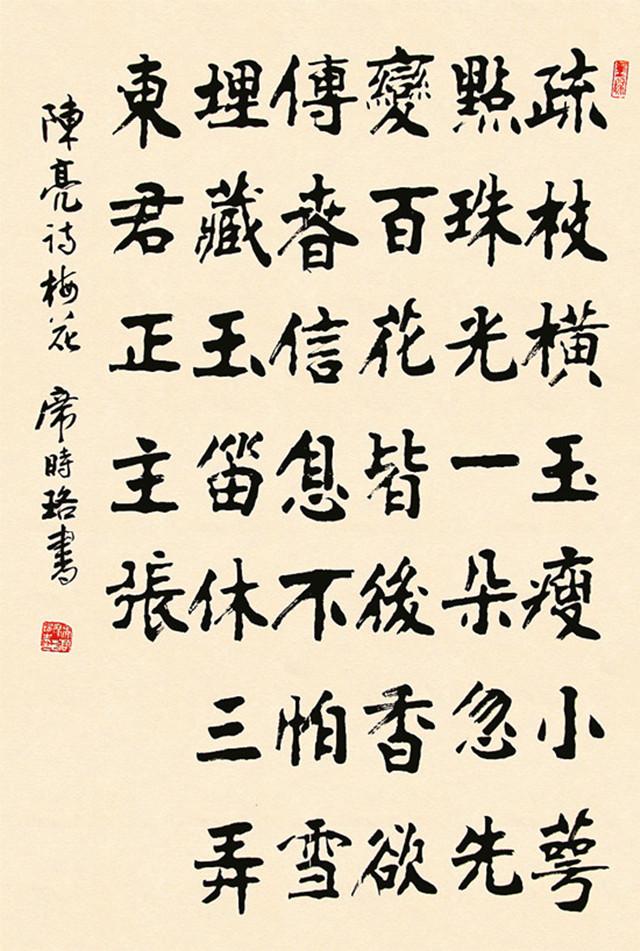 疏枝橫玉瘦小萼
點珠光一朵忽先
變百花皆後香欲
傳春信息不怕雪
埋藏玉笛休三弄
東君正主張
陳亮诗梅花 席時珞書